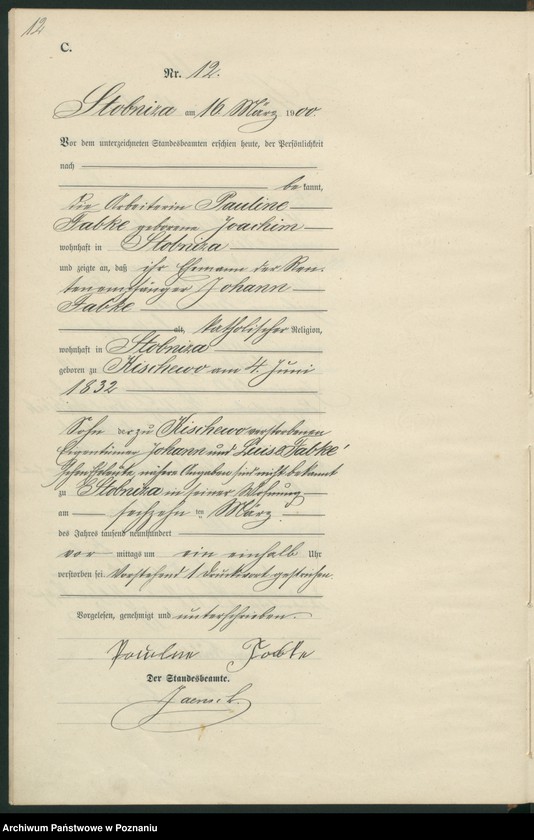 12
C.
Nr. 12.
Stobniza am 16. März 1900.
Vor dem unterzeichneten Standesbeamten erschien heute, der Persönlichkeit
nach
be kannt,
die Arbeiterin Pauline
Fabke geborene Joachim
wohnhaft in Stobniza
und zeigte an, daß ihr Ehemann der Ren-
tenempfänger Johann
Fabke
alt, katholischer Religion,
wohnhaft in Stobniza
geboren zu Kischewo am 4. Juni
1832
Sohn der zu Kischewo verstorbenen
Eigentümer Johann und Fabke'
schen Eheleute, nähere Angaben sind nicht bekannt
zu Stobniza in seiner Wohnung
am sechzehn ten März
des Jahres tausend neunhundert
vor mittags um ein einhalb Uhr
verstorben sei. Vorstehend 1 Druckwort gestrichen.
Vorgelesen, genehmigt und unterschrieben.
Pauline Fabke
Der Standesbeamte.
Archiwum Państwowe w Poznaniu